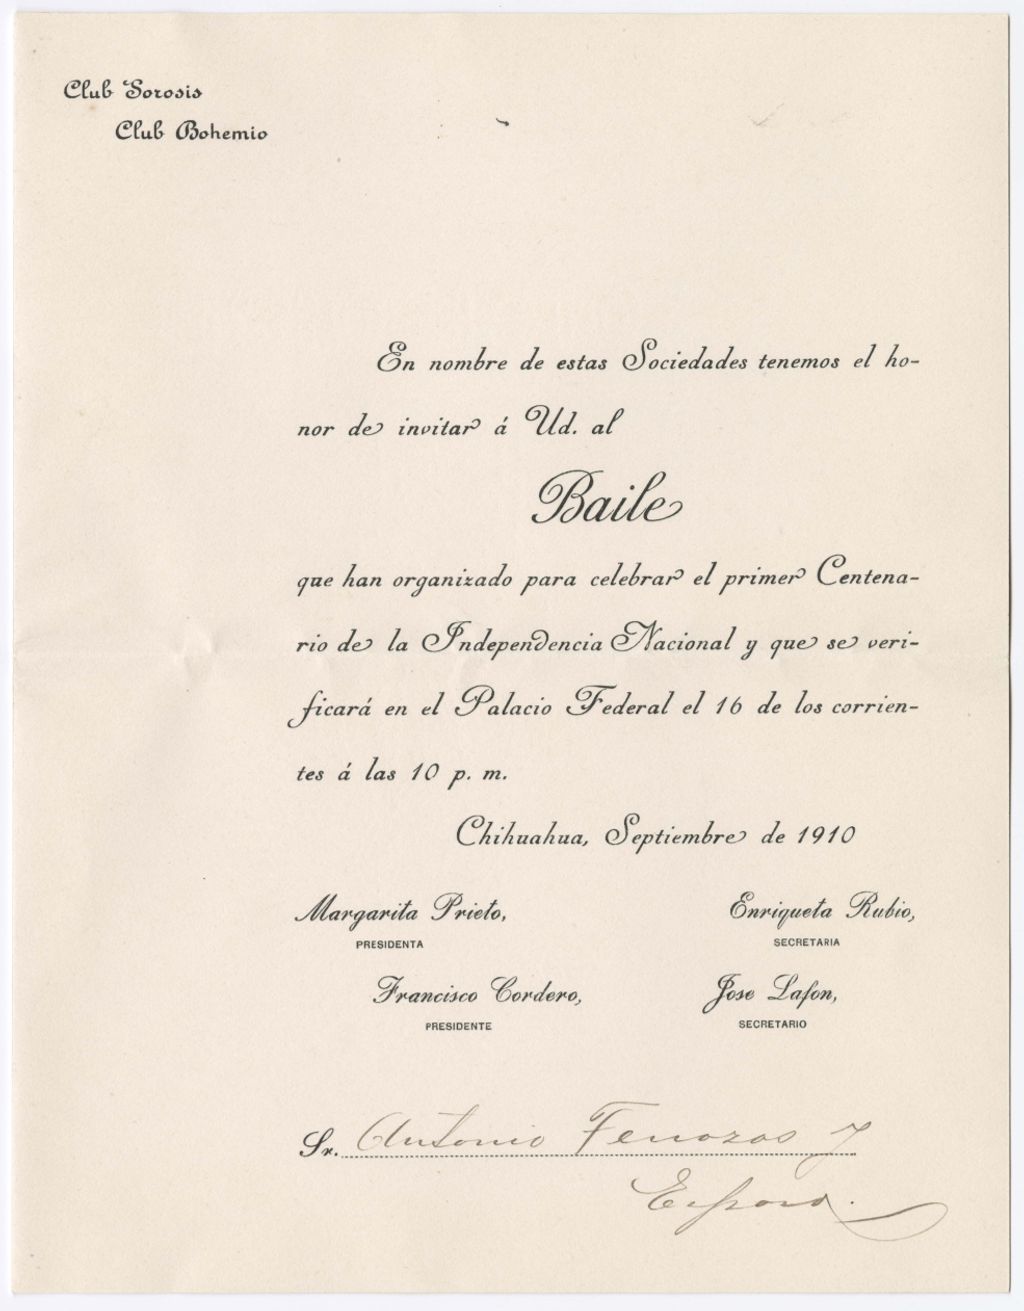 Club Sorosis
Club Bohemio
En nombre de estas Sociedades tenemos el ho-
nor de invitar á Ud. al
Baile
que han organizado para celebrar el primer Centena-
rio de la Independencia Nacional y que se veri-
ficará en el Palacio Federal el 16 de los corrien-
tes á las 10 p. m.
Chihuahua, Septiembre de 1910
Margarita Prieto, Enriqueta Rubio,
PRESIDENTA SECRETARIA
Francisco Cordero, Jose Lafon,
PRESIDENTE SECRETARIO
Sr. Antonio y